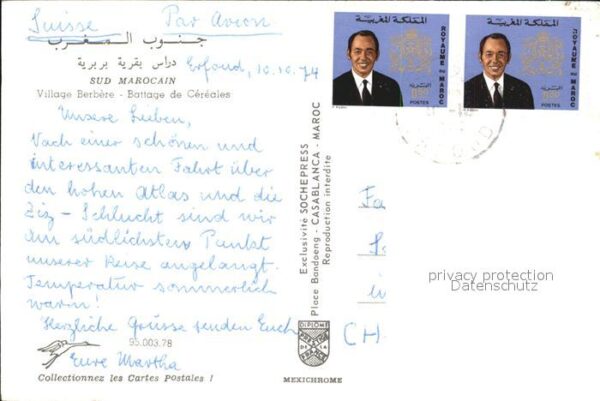 Suisse Par Avion
جنوب المغرب
دراس بقرية بربرية
Erfoud, 10.10.74
SUD MAROCAIN
Village Berbère - Battage de Céréales
Unsere Lieben,
Nach einer schönen und
interessanten Fahrt über
den hohen Atlas und die
Ziz - Schlucht sind wir
am südlichsten Punkt
unserer Reise angelangt.
Temperatur sommerlich
warm!
Herzliche Grüsse senden Euch
95.003.78
Eure Martha
Collectionnez les Cartes Postales !
Exclusivité SOCHEPRESS
Place Bandoeng - CASABLANCA - MAROC
Reproduction interdite
DIPLOME
PRESTIGE
DE LA
FRANCE
MEXICHROME
المملكة المغربية
ROYAUME DU MAROC
البريد
POSTES
المملكة المغربية
ROYAUME DU MAROC
البريد
POSTES
Fa
CH
privacy protection
Datenschutz